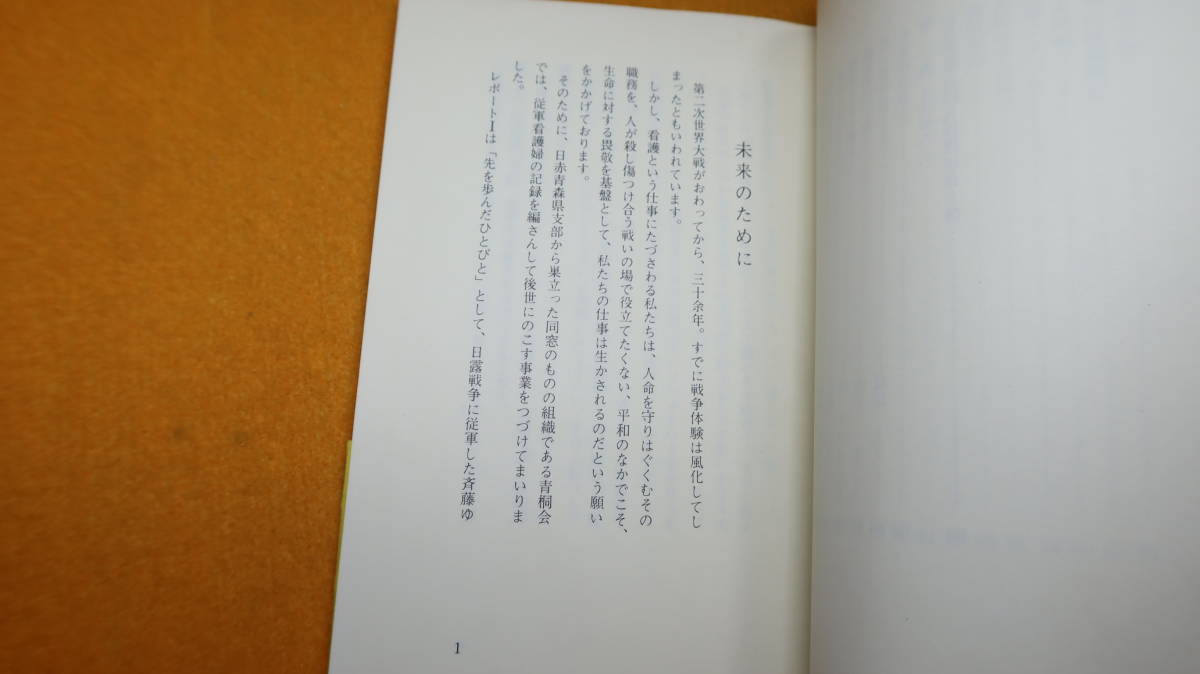 未来のために
第二次世界大戦がおわってから、三十余年。すでに戦争体験は風化してし
まったともいわれています。
しかし、看護という仕事にたづさわる私たちは、人命を守りはぐくむその
職務を、人が殺し傷つけ合う戦いの場で役立てたくない、平和のなかでこそ、
生命に対する畏敬を基盤として、私たちの仕事は生かされるのだという願い
をかかげております。
そのために、日赤青森県支部から巣立った同窓のものの組織である青桐会
では、従軍看護婦の記録を編さんして後世にのこす事業をつづけてまいりま
した。
レポートⅠは「先を歩んだひとびと」として、日露戦争に従軍した斉藤ゆ
1